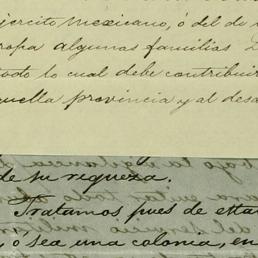 ejercito Mexicano, ó del de
ropa algunas familias
todo lo cual debe contribuir
quella provincia y al desa
de su riqueza.
Tratamos pues de esta
ó sea una colonia, en